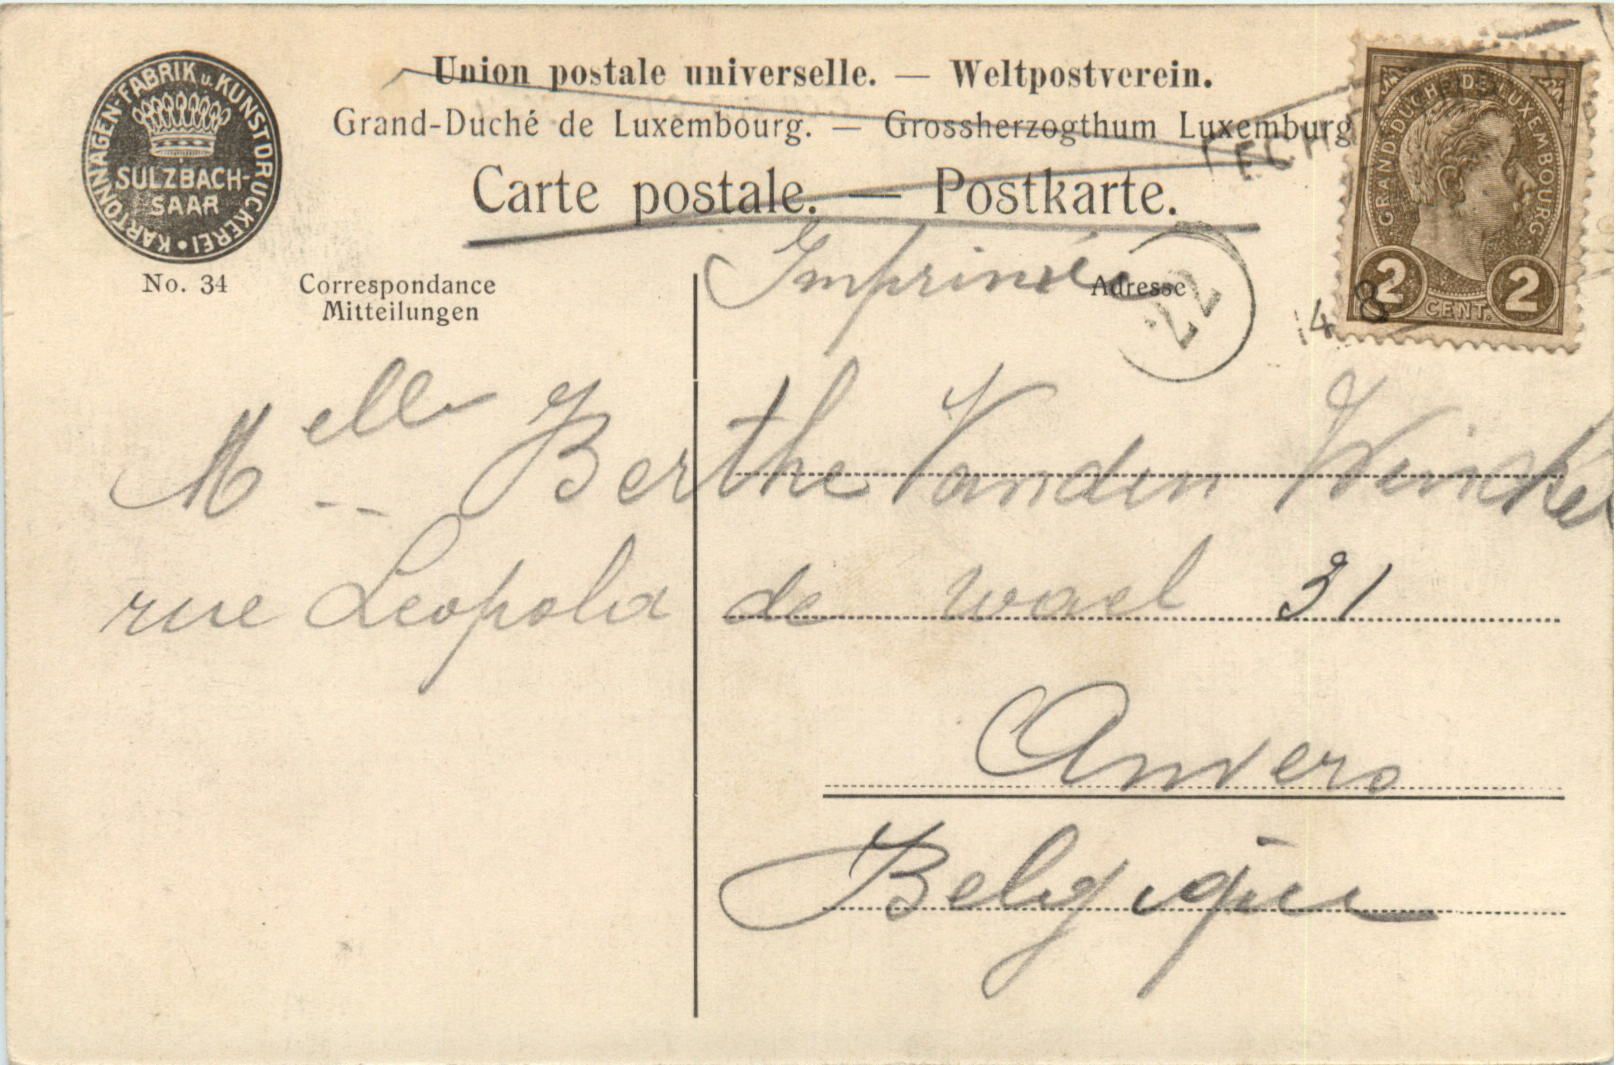 KARTONNAGEN-FABRIK u. KUNSTDRUCKEREI •
SULZBACH-
SAAR
No. 34
Union postale universelle. — Weltpostverein.
Grand-Duché de Luxembourg. — Grossherzogthum Luxemburg
Carte postale. — Postkarte.
Correspondance
Mitteilungen
Imprimé
Adresse
22
ECH
14 8
GRAND-DUCHÉ DE LUXEMBOURG
2 CENT. 2
Melle Berthe Vanden Winckel
rue Leopold de wael 31
Anvers
Belgique